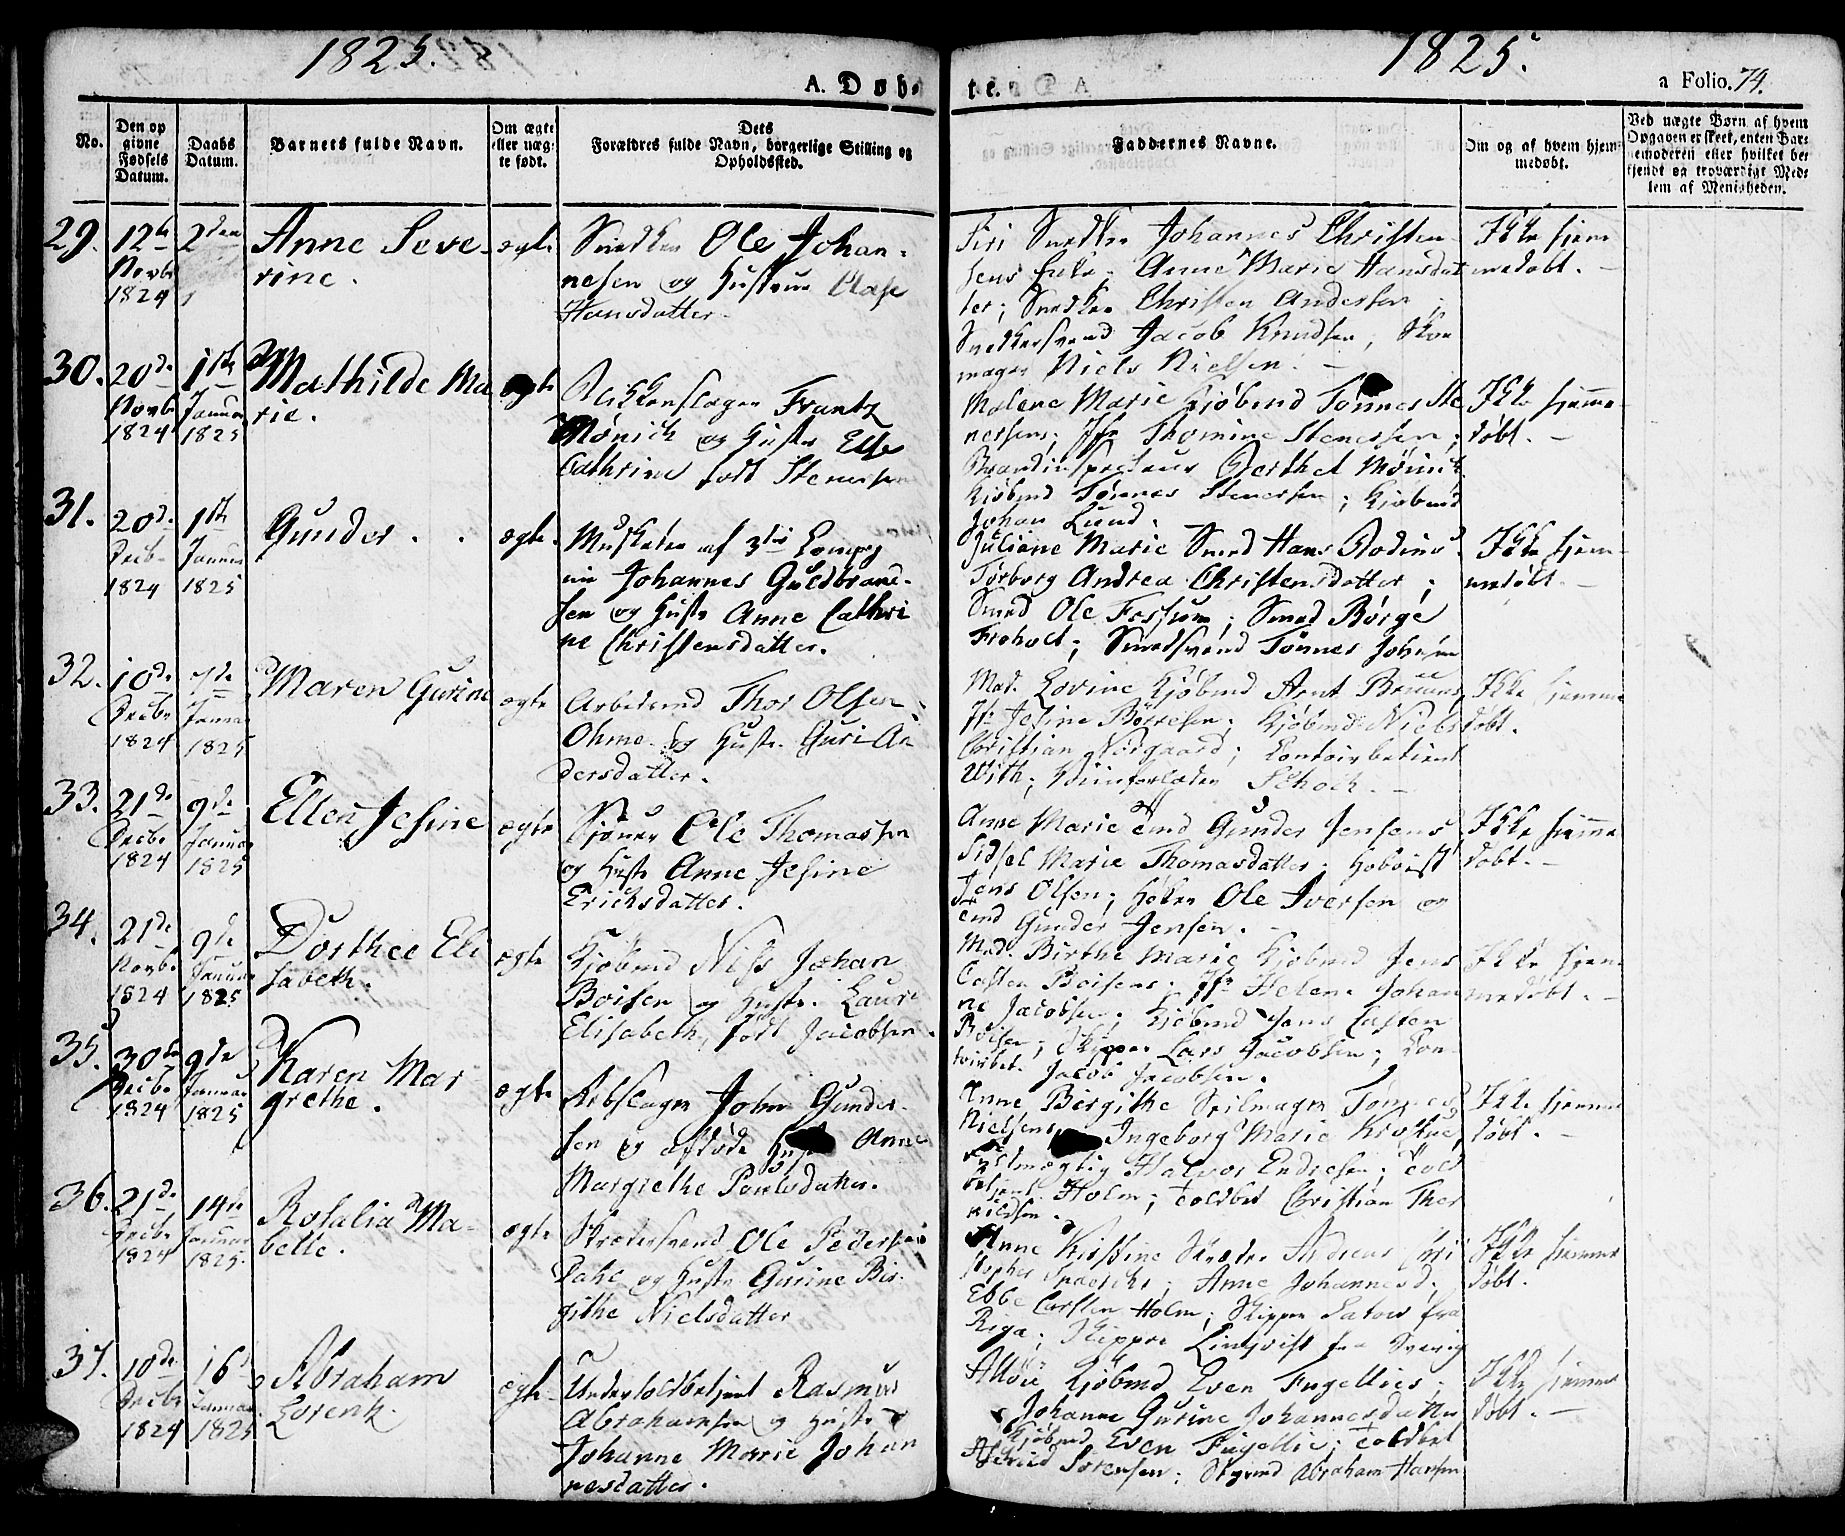 1825.
1825.
A. Døb-
te.
a Folio. 74.
No.
Den op
givne
Fødsels
Datum.
Daabs
Datum.
Barnets fulde Navn.
Om ægte
eller uæg-
te født.
Dets
Forældres fulde Navn, borgerlige Stilling og
Opholdssted.
Faddernes Navne.
Om og af hvem hjem-
medøbt.
Ved uægte Børn af hvem
Opgaven er skeet, enten Bar-
nemoderen eller hvilket be-
kjendt og troværdigt Med-
lem af Menigheden.
29.
12te
Novbr
1824
2den
Anne Seve-
rine.
ægte
Snedker Ole Johan-
nesen og Hustrue
Hansdatter.
Siri Snedker Johannes Christen-
sens Enke; Anne Marie Hansdat
ter; Snedker Christen Andersen;
Snedkersvend Jacob Knudsen, Sko
mager Niels Nielsen.
Ikke hjem
medøbt.
30.
20de
Novbr
1824
1ste
Januar
1825
Mathilde Ma
rie.
ægte
Blikkenslager Frantz
Mønich og Hustr Else
Cathrine født Stenersen
Malene Marie Kjøbmd Tønnes Ste
nersens; Jfr Thomine Stenersen;
Brandinspecteur Berthel Mønich
Kjøbmd Tønnes Stenersen; Kjøbmd
Johan Lund.
Ikke hjemme
døbt.
31.
20de
Decbr
1824
1ste
Januar
1825
Gunder.
ægte.
Musketer af 3die Compag
nie Johannes Guldbrand-
sen og Hustr Anne Cathri
ne Christensdatter.
Juliane Marie Smed Hans Bodins
Torborg Andrea Christensdatter;
Smed Ole Fossum; Smed Børge
Froholt; Smedsvend Tønnes Johnsen
Ikke hjem-
medøbt.
32.
10de
Decbr
1824
7de
Januar
1825
Maren Gurine
ægte
Arbeidsmd Thor Olsen
Ohme og Hustr. Guri An
dersdatter.
Mad. Lovine Kjøbmd Arnt
Jfr Jesine Børresen; Kjøbmd Niels
Christian Nørgaard; Contoirbetient
With;
Ikke hjemme
døbt.
33.
21de
Decbr
1824
9de
Januar
1825
Ellen Jesine
ægte
Ole Thomassen
og Hustr Anne Jesine
Ericksdatter.
Anne Marie Gunder Jensens
Sidsel Marie Thomasdatter; Hoboist
Jens Olsen; Ole Iversen og
Gunder Jensen.
Ikke hjemme
døbt.
34.
21de
Novbr
1824
9de
Januar
1825
Dorthea Eli
sabeth.
ægte
Kjøbmd Niss Johan
Boisen og Hustr. Laure
Elisabeth, født Jacobsen
Mad. Birthe Marie Kjøbmd Jens
Casten Boisens; Jfr Helene Johan
ne Jacobsen; Kjøbmd Jens Casten
Boisen; Skipper Lars Jacobsen; Con
Jacob Jacobsen.
Ikke hjem
medøbt.
35.
30te
Decbr
1824
9de
Januar
1825
Karen Mar
grethe.
ægte
John Gunder-
sen og afdøde Hustr Anne
Margrethe Povelsdatter.
Anne Birgithe Seilmager Tønnes
Nielsens; Ingeborg Marie
Halvor Endresen; Told
betjent Holm; Toldbet Christian Ther
kildsen.
Ikke hjemme
døbt.
36.
21de
Decbr
1824
14de
Januar
1825.
Rosalia Ma-
belle.
ægte
Skrædersvend Ole Pedersen
Dahl og Hustr Gurine Bir-
githe Nielsdatter
Anne Kirstine Skræder Andreas Chri
stopher; Anne Johannesd;
Ebbe Carsten Holm; Skipper fra
Riga; Skipper Linqvist fra Sverig
Ikke hjemme
døbt.
37.
10de
Decbr
1824
16
Januar
1825
Abraham
Lorentz.
ægte
Undertoldbetjent Rasmus
Abrahamsen og Hustr
Johanne Marie Johan
nesdatter.
Kjøbmd Even Fugellies;
Johanne Gurine Johannesdatter
Kjøbmd Even Fugellie; Toldbet
Sørensen; Abraham Hansen
Ikke hjemme
døbt.